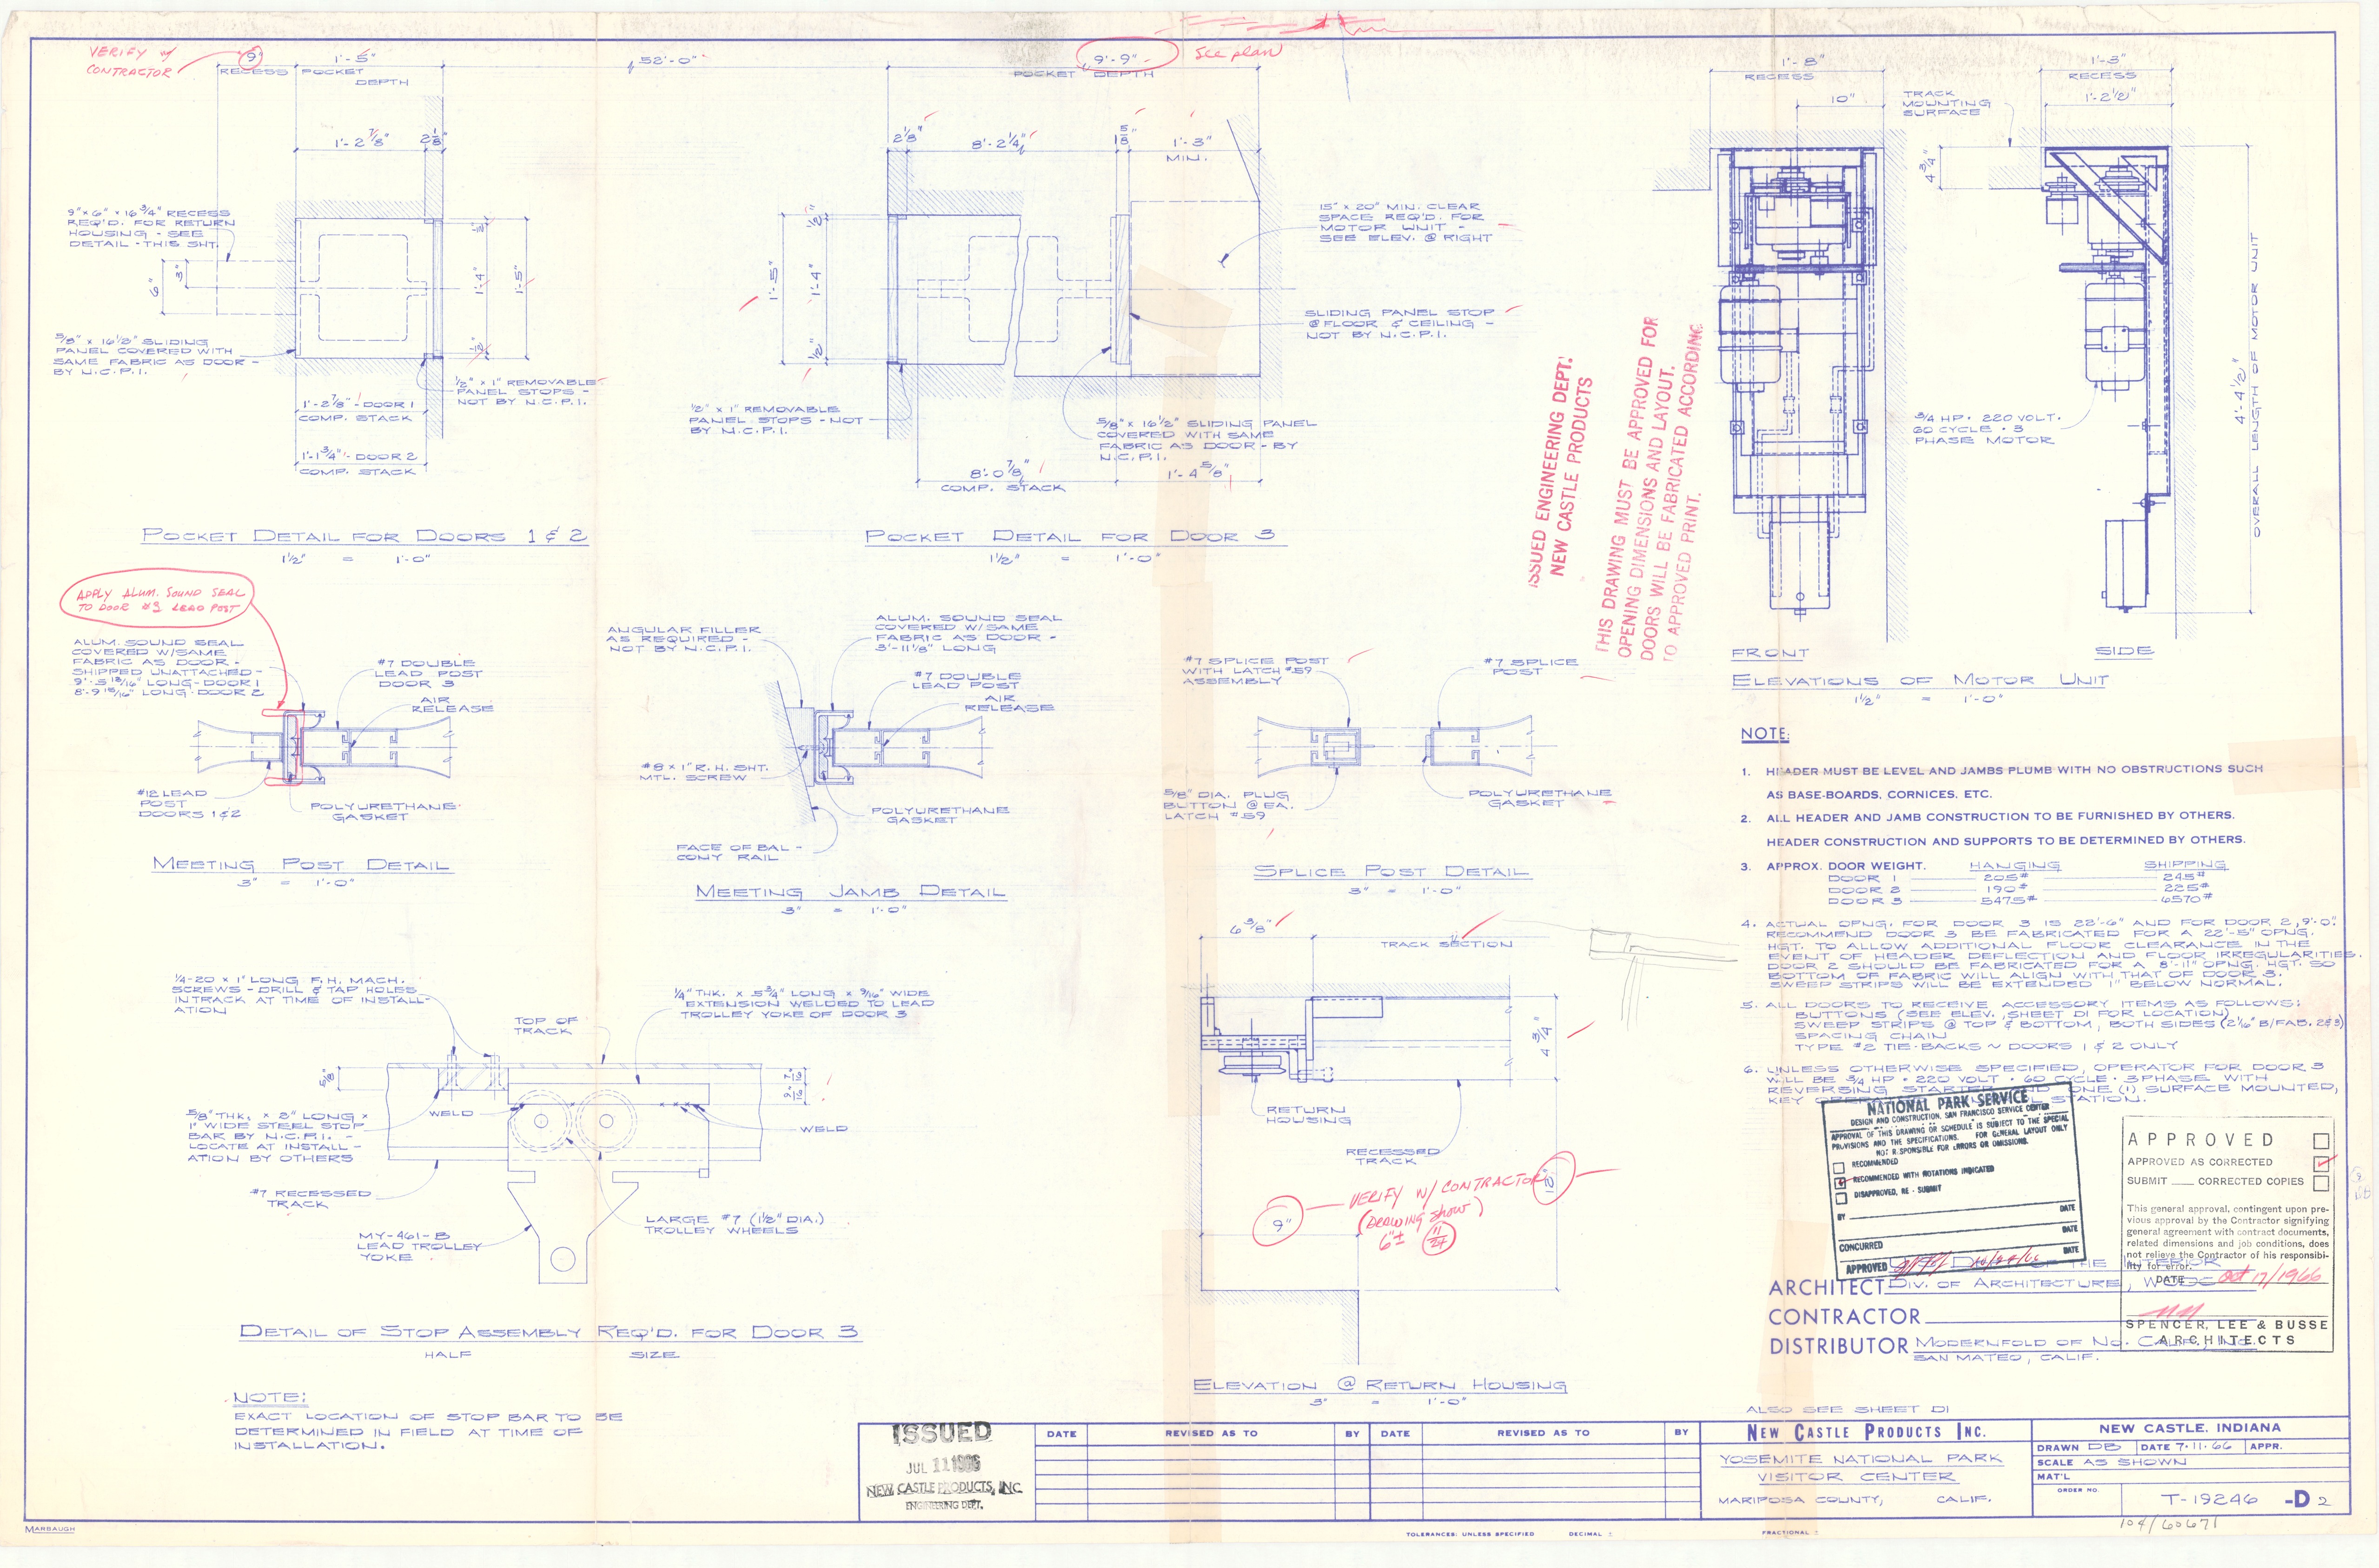 VERIFY w/
CONTRACTOR
9"
RECESS
1'-5"
POCKET
DEPTH
52'-0"
9'-9"
POCKET DEPTH
See plan
1'-2 7/8"
2 1/8"
9"x 6" x 16 3/4" RECESS
REQ'D. FOR RETURN
HOUSING - SEE
DETAIL - THIS SHT.
6"
3"
1/2"
1'-4"
1'-5"
1/2"
5/8" x 16 1/2" SLIDING
PANEL COVERED WITH
SAME FABRIC AS DOOR -
BY N.C.P.I.
1/2" x 1" REMOVABLE
PANEL STOPS -
NOT BY N.C.P.I.
1'-2 7/8" - DOOR 1
COMP. STACK
1'-1 3/4" - DOOR 2
COMP. STACK
POCKET DETAIL FOR DOORS 1 & 2
1 1/2" = 1'-0"
2 1/8"
8'-2 1/4"
1 5/8"
1'-3"
MIN.
1'-5"
1/2"
1'-4"
1/2"
15" x 20" MIN. CLEAR
SPACE REQ'D. FOR
MOTOR UNIT -
SEE ELEV. @ RIGHT
SLIDING PANEL STOP
@ FLOOR & CEILING -
NOT BY N.C.P.I.
1/2" x 1" REMOVABLE
PANEL STOPS - NOT
BY N.C.P.I.
5/8" x 16 1/2" SLIDING PANEL
COVERED WITH SAME
FABRIC AS DOOR - BY
N.C.P.I.
8'-0 7/8"
COMP. STACK
1'-4 5/8"
POCKET DETAIL FOR DOOR 3
1 1/2" = 1'-0"
ISSUED ENGINEERING DEPT.
NEW CASTLE PRODUCTS
THIS DRAWING MUST BE APPROVED FOR
OPENING DIMENSIONS AND LAYOUT.
DOORS WILL BE FABRICATED ACCORDING
TO APPROVED PRINT.
1'-8"
RECESS
10"
TRACK
MOUNTING
SURFACE
4 3/4"
1'-3"
RECESS
1'-2 1/2"
3/4 HP. 220 VOLT.
60 CYCLE . 3
PHASE MOTOR
4'-4 1/2"
OVERALL LENGTH OF MOTOR UNIT
FRONT
SIDE
ELEVATIONS OF MOTOR UNIT
1 1/2" = 1'-0"
APPLY ALUM. SOUND SEAL
TO DOOR #3 LEAD POST
ALUM. SOUND SEAL
COVERED W/SAME
FABRIC AS DOOR -
SHIPPED UNATTACHED -
9'-5 13/16" LONG - DOOR 1
8'-9 15/16" LONG - DOOR 2
#7 DOUBLE
LEAD POST
DOOR 3
AIR
RELEASE
#12 LEAD
POST
DOORS 1 & 2
POLYURETHANE
GASKET
MEETING POST DETAIL
3" = 1'-0"
ANGULAR FILLER
AS REQUIRED -
NOT BY N.C.P.I.
ALUM. SOUND SEAL
COVERED W/SAME
FABRIC AS DOOR -
3'-11 1/8" LONG
#7 DOUBLE
LEAD POST
AIR
RELEASE
#8 x 1" R.H. SHT.
MTL. SCREW
POLYURETHANE
GASKET
FACE OF BAL-
CONY RAIL
MEETING JAMB DETAIL
3" = 1'-0"
#7 SPLICE POST
WITH LATCH #59
ASSEMBLY
#7 SPLICE
POST
5/8" DIA. PLUG
BUTTON @ EA.
LATCH #59
POLYURETHANE
GASKET
SPLICE POST DETAIL
3" = 1'-0"
NOTE:
1. HEADER MUST BE LEVEL AND JAMBS PLUMB WITH NO OBSTRUCTIONS SUCH
AS BASE-BOARDS, CORNICES, ETC.
2. ALL HEADER AND JAMB CONSTRUCTION TO BE FURNISHED BY OTHERS.
HEADER CONSTRUCTION AND SUPPORTS TO BE DETERMINED BY OTHERS.
3. APPROX. DOOR WEIGHT. HANGING SHIPPING
DOOR 1 205# 245#
DOOR 2 190# 225#
DOOR 3 5475# 6570#
4. ACTUAL OPNG. FOR DOOR 3 IS 22'-6" AND FOR DOOR 2, 9'-0".
RECOMMEND DOOR 3 BE FABRICATED FOR A 22'-5" OPNG.
HGT. TO ALLOW ADDITIONAL FLOOR CLEARANCE IN THE
EVENT OF HEADER DEFLECTION AND FLOOR IRREGULARITIES.
DOOR 2 SHOULD BE FABRICATED FOR A 8'-11" OPNG. HGT. SO
BOTTOM OF FABRIC WILL ALIGN WITH THAT OF DOOR 3.
SWEEP STRIPS WILL BE EXTENDED 1" BELOW NORMAL.
5. ALL DOORS TO RECEIVE ACCESSORY ITEMS AS FOLLOWS:
BUTTONS (SEE ELEV., SHEET D1 FOR LOCATION)
SWEEP STRIPS @ TOP & BOTTOM, BOTH SIDES (2 1/16" B/FAB. 2&3)
SPACING CHAIN
TYPE #2 TIE-BACKS ~ DOORS 1 & 2 ONLY
6. UNLESS OTHERWISE SPECIFIED, OPERATOR FOR DOOR 3
WILL BE 3/4 HP . 220 VOLT . 60 CYCLE . 3 PHASE WITH
REVERSING STARTER AND ONE (1) SURFACE MOUNTED,
KEY STATION.
1/4-20 x 1" LONG F.H. MACH.
SCREWS - DRILL & TAP HOLES
IN TRACK AT TIME OF INSTALL-
ATION
TOP OF
TRACK
1/4" THK. x 5 3/4" LONG x 9/16" WIDE
EXTENSION WELDED TO LEAD
TROLLEY YOKE OF DOOR 3
5/8"
7/16
9/16
WELD
WELD
5/8" THK. x 2" LONG x
1" WIDE STEEL STOP
BAR BY N.C.P.I. -
LOCATE AT INSTALL-
ATION BY OTHERS
#7 RECESSED
TRACK
MY-461-B
LEAD TROLLEY
YOKE
LARGE #7 (1 1/2" DIA.)
TROLLEY WHEELS
DETAIL OF STOP ASSEMBLY REQ'D. FOR DOOR 3
HALF SIZE
NOTE:
EXACT LOCATION OF STOP BAR TO BE
DETERMINED IN FIELD AT TIME OF
INSTALLATION.
6 3/8"
TRACK SECTION
4 3/4"
RETURN
HOUSING
RECESSED
TRACK
9"
VERIFY W/ CONTRACTOR
(DRAWING show)
6"±
11/24
ELEVATION @ RETURN HOUSING
3" = 1'-0"
NATIONAL PARK SERVICE
DESIGN AND CONSTRUCTION, SAN FRANCISCO SERVICE CENTER
APPROVAL OF THIS DRAWING OR SCHEDULE IS SUBJECT TO THE SPECIAL
PROVISIONS AND THE SPECIFICATIONS. FOR GENERAL LAYOUT ONLY
NOT RESPONSIBLE FOR ERRORS OR OMISSIONS.
RECOMMENDED
RECOMMENDED WITH NOTATIONS INDICATED
DISAPPROVED, RE-SUBMIT
BY DATE
CONCURRED DATE
APPROVED DATE
APPROVED
APPROVED AS CORRECTED
SUBMIT ___ CORRECTED COPIES
This general approval, contingent upon pre-
vious approval by the Contractor signifying
general agreement with contract documents,
related dimensions and job conditions, does
not relieve the Contractor of his responsibi-
lity for error.
DATE Oct 17/1966
SPENCER, LEE & BUSSE
ARCHITECTS
OF THE INTERIOR
ARCHITECT DIV. OF ARCHITECTURE,
CONTRACTOR
DISTRIBUTOR MODERNFOLD OF NO. CALIF., INC.
SAN MATEO, CALIF.
ALSO SEE SHEET D1
ISSUED
JUL 11 1966
NEW CASTLE PRODUCTS, INC.
ENGINEERING DEPT.
DATE REVISED AS TO BY DATE REVISED AS TO BY
NEW CASTLE PRODUCTS INC.
NEW CASTLE, INDIANA
YOSEMITE NATIONAL PARK
VISITOR CENTER
MARIPOSA COUNTY, CALIF.
DRAWN DB DATE 7-11-66 APPR.
SCALE AS SHOWN
MAT'L
ORDER NO.
T-19246 -D2
104/60671
MARBAUGH
TOLERANCES: UNLESS SPECIFIED DECIMAL ± FRACTIONAL ±